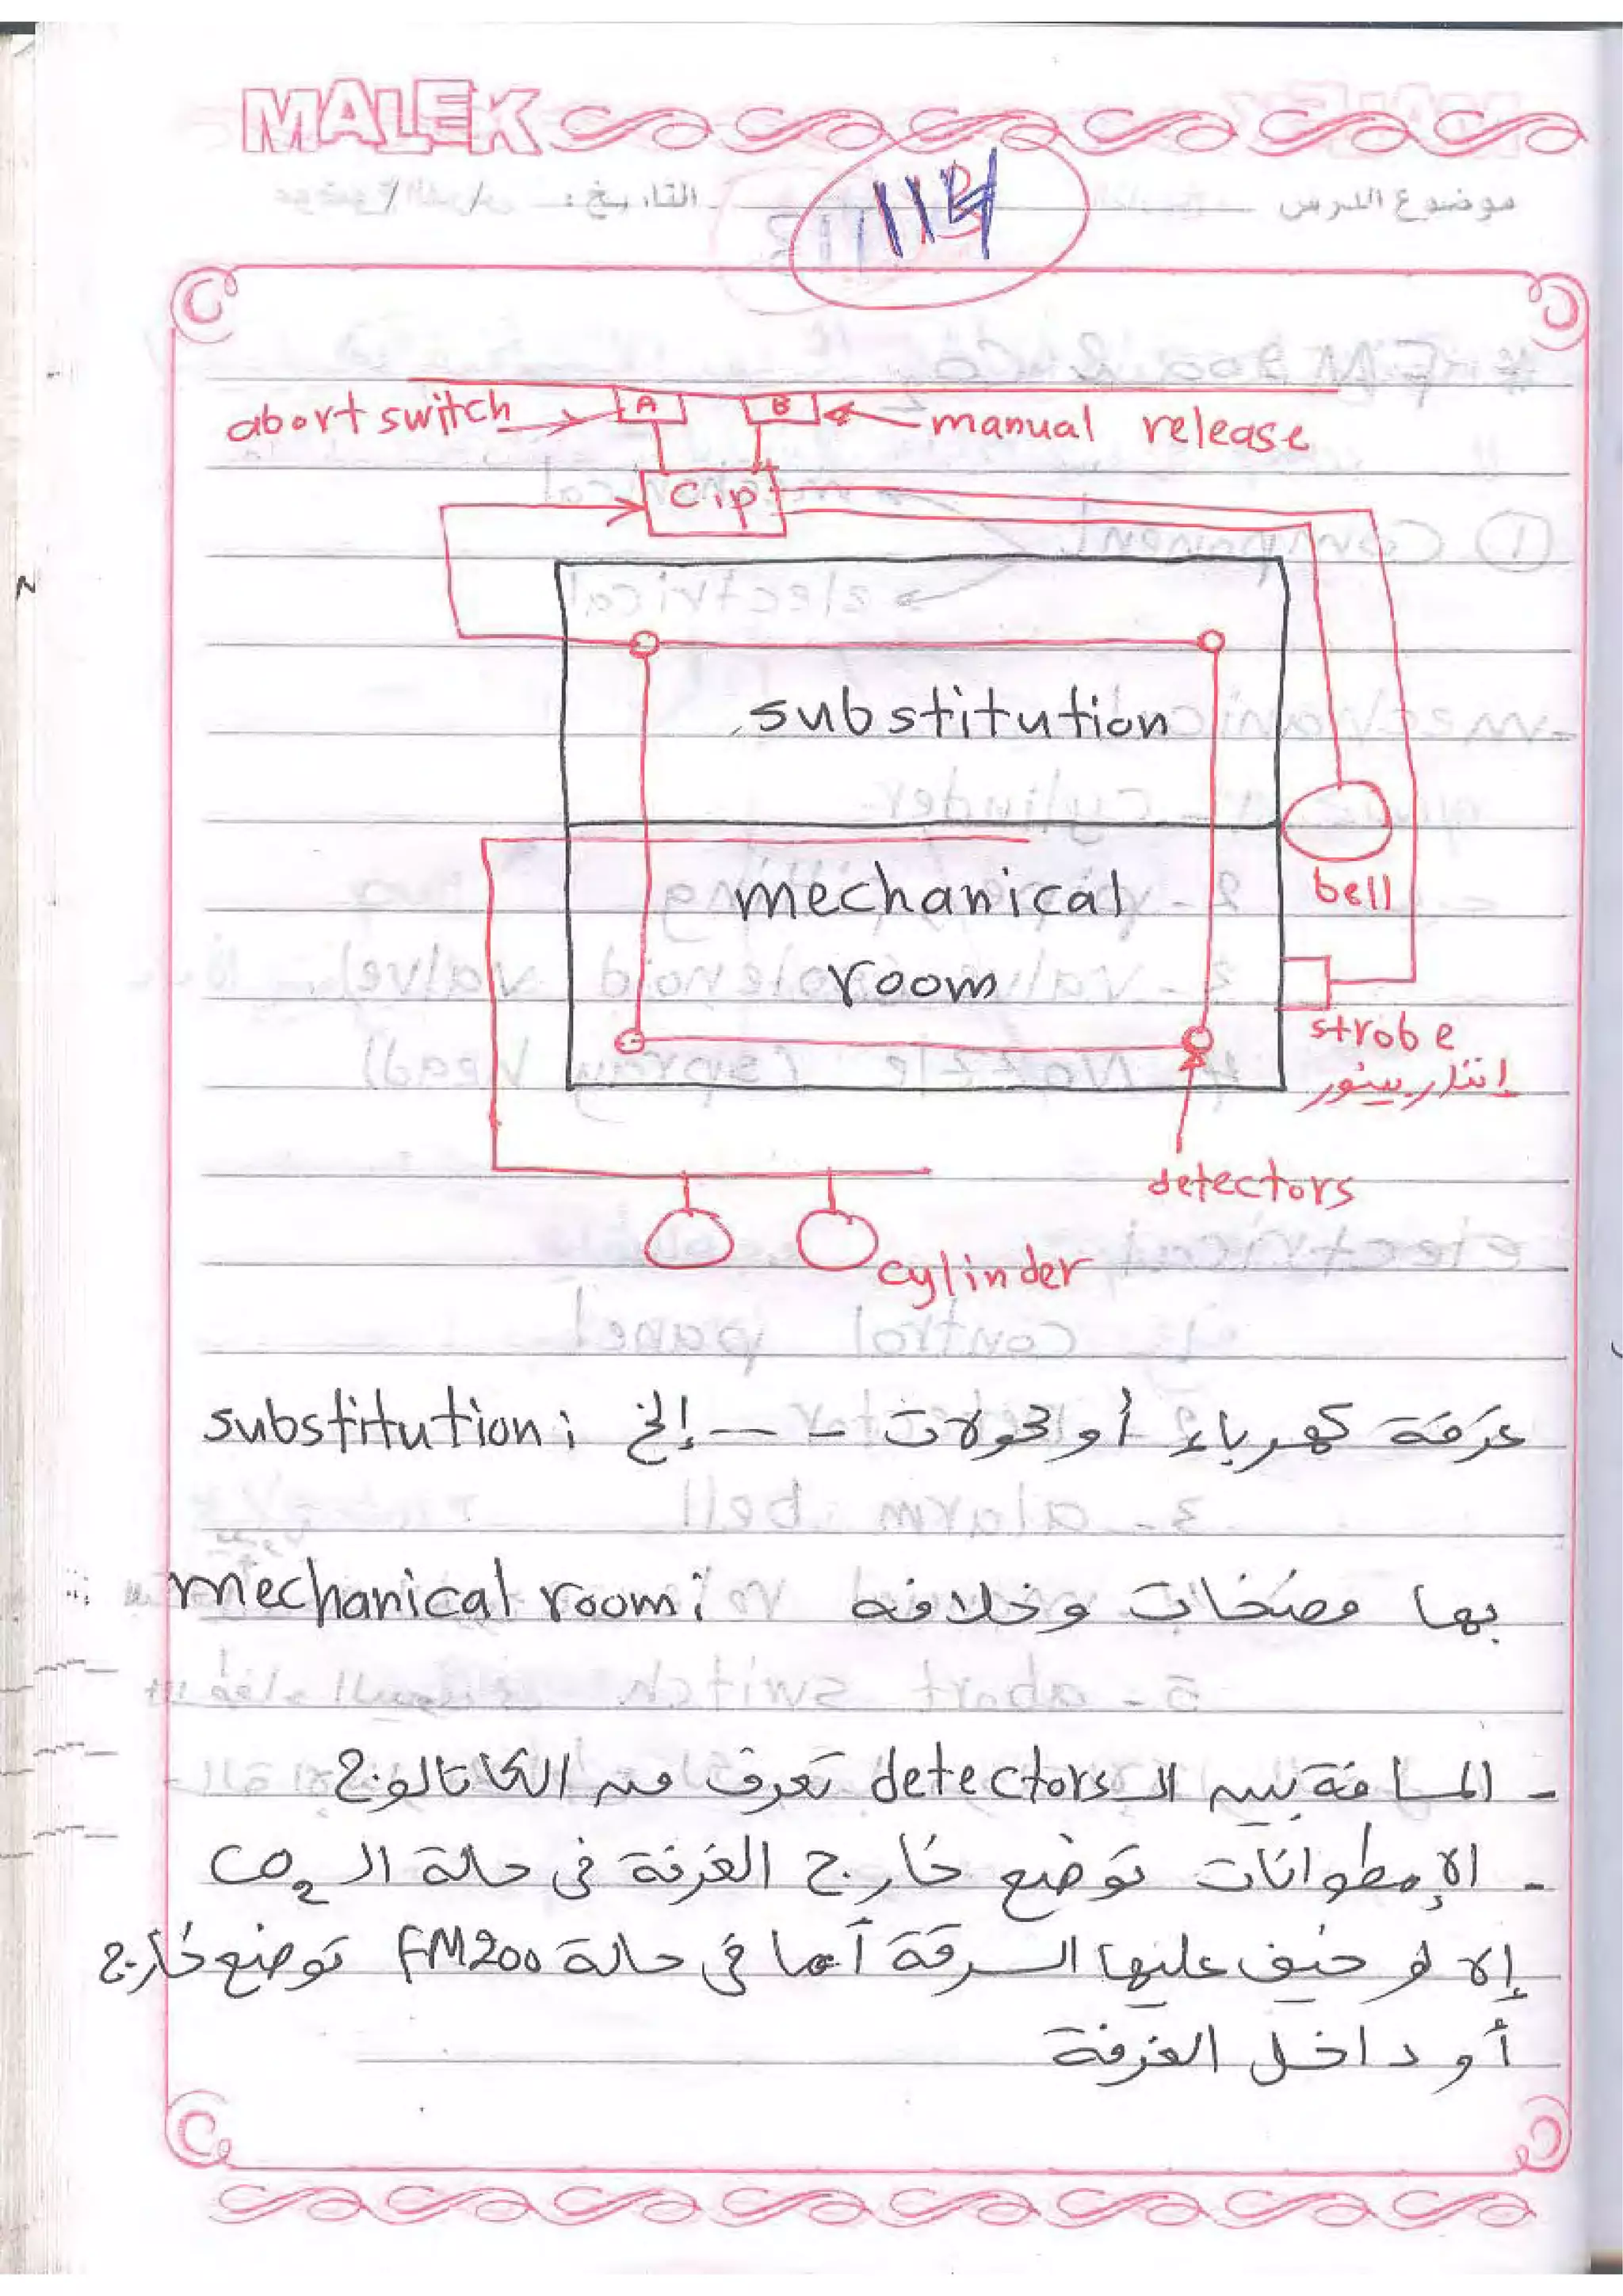 MALEK
موضوع الدرس التاريخ: / /
114
abort switch A B manual release
C.P
substitution
mechanical
room
bell
strobe
إنذار بينور
detectors
cylinder
substitution: غرفة كهرباء أو محولات -- إلخ
mechanical room: بها مضخات وخلافه
- المسافة بين الـ detectors تعرف من الكتالوج
- الإسطوانات توضع خارج الغرفة فى حالة الـ CO2
إلا لو خيف عليها السرقة أما فى حالة FM200 توضع خارج
أو داخل الغرفة